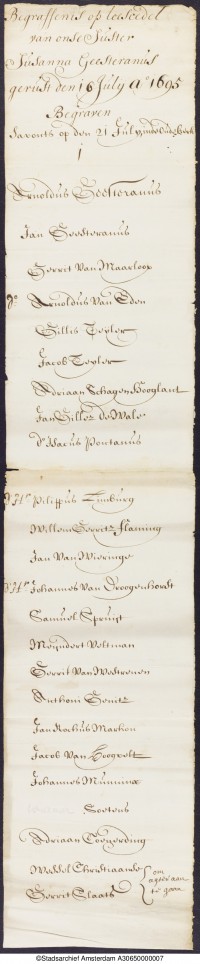 Begraffenis op leesedel
van onse Suster
Susanna Geesteranus
gerust den 16 July Aº 1695
Begraven
Savonts op den 21 July inde Oude Kerk
1
Arnoldus Geesteranus
Jan Geesteranus
Gerret Van Maarloop
Dº Arnoldus Van Eden
Gillis Teyler
Jacob Teyler
Adriaan Schagen Hooglant
Jan Gillez de Wale
Dº Isacus Pontanus
d'Hr Pilippus Limburg
Willem Gerritz Flaming
Jan Van Wieringe
d'Hr Johannes Van Droogenhordt
Samuel Spruyt
Meyndert Veltman
Gerrit Van Westrenen
Anthoni Genitz
Jan Rochus Markon
Jacob Van Hoogvelt
Johannes Munninx
Soetens
Adriaan Toegerding
Wessel Christiaanse
Gerrit Slaats
om
agter aan
te gaan
©Stadsarchief Amsterdam A30650000007